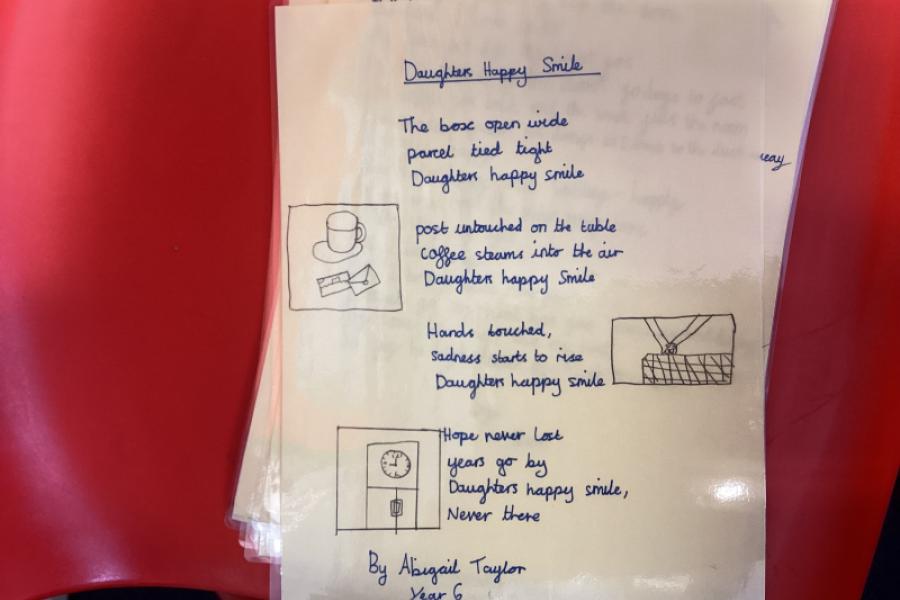 Daughters Happy Smile
The box open wide
parcel tied tight
Daughters happy smile
post untouched on the table
coffee steams into the air
Daughters happy Smile
Hands touched,
sadness starts to rise
Daughters happy smile
Hope never lost
years go by
Daughters happy smile,
Never there
By Abigail Taylor
Year 6